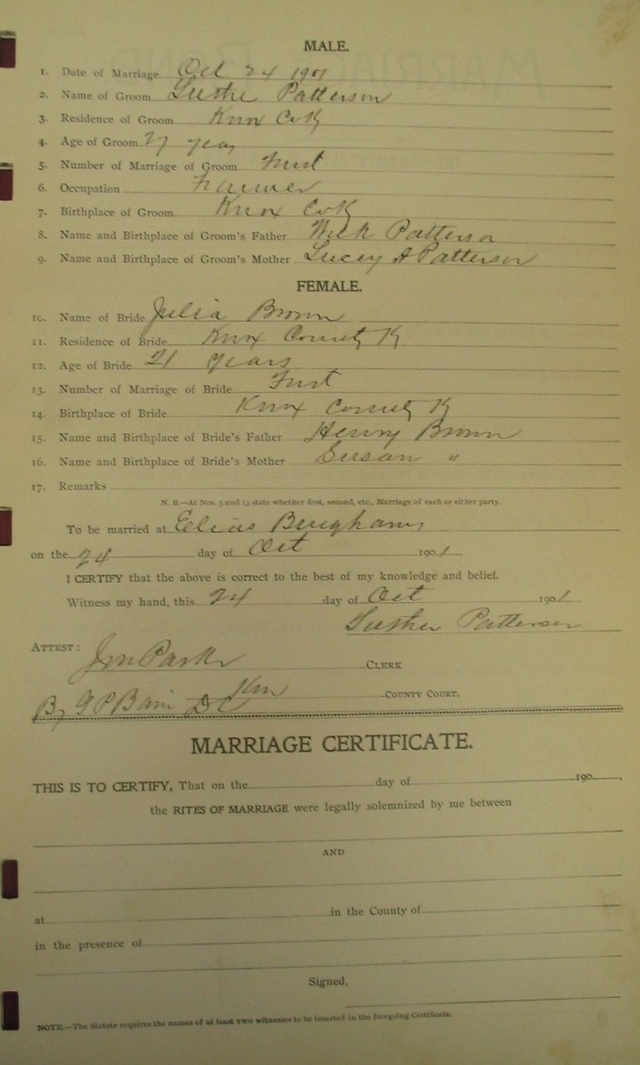 MALE.
1. Date of Marriage Oct 24 1901
2. Name of Groom Luther Patterson
3. Residence of Groom Knox Co K
4. Age of Groom 27 years
5. Number of Marriage of Groom First
6. Occupation Farmer
7. Birthplace of Groom Knox Co K
8. Name and Birthplace of Groom's Father Patterson
9. Name and Birthplace of Groom's Mother Lucey A Patterson
FEMALE.
10. Name of Bride Julia Brown
11. Residence of Bride Knox County K
12. Age of Bride 21 years
13. Number of Marriage of Bride First
14. Birthplace of Bride Knox County K
15. Name and Birthplace of Bride's Father Henry Brown
16. Name and Birthplace of Bride's Mother Susan "
17. Remarks
N. B.—At Nos. 5 and 13 state whether first, second, etc., Marriage of each or either party.
To be married at Elias Binghams
on the 24 day of Oct 1901
I CERTIFY that the above is correct to the best of my knowledge and belief.
Witness my hand, this 24 day of Oct 1901
Luther Patterson
ATTEST: Jm Parker CLERK
Knx COUNTY COURT.
By Bain DC
MARRIAGE CERTIFICATE.
THIS IS TO CERTIFY, That on the day of 190 ,
the RITES OF MARRIAGE were legally solemnized by me between
AND
at in the County of
in the presence of
Signed,
NOTE.—The Statute requires the names of at least two witnesses to be inserted in the foregoing Certificate.